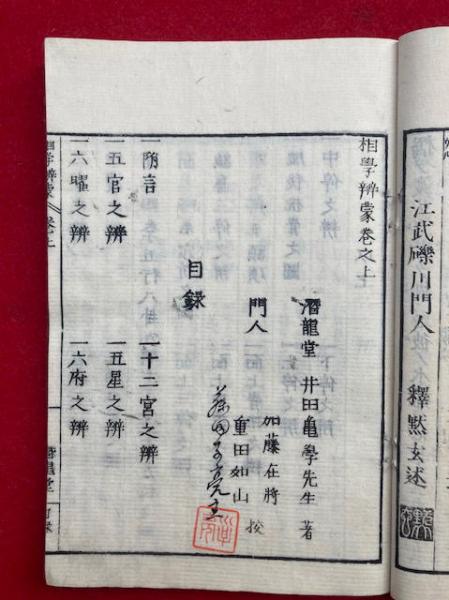 江武礫川門人 釋黙玄述
相學辨蒙卷之上
潛龍堂 井田龜學先生 著
門人
加藤在將
重田如山
校
目録
一 隋言
一 十二宮之辨
一 五官之辨
一 五星之辨
一 六曜之辨
一 六府之辨
相學辨蒙
卷上
潛龍堂